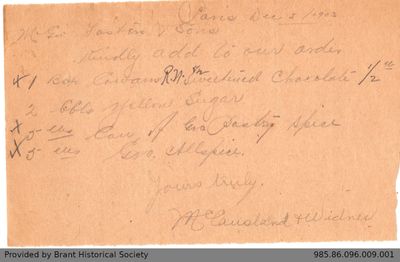 Paris Dec 5/1903
Geo Foster & Sons
Kindly add to our order
x 1 Box Cowans Sweetened Chocolate 1/2
2 Bbls Yellow Sugar
x 5 Pastry Spice
x 5 Allspice.
Yours truly.
McCausland & Widner
Provided by Brant Historical Society
985.86.096.009.001